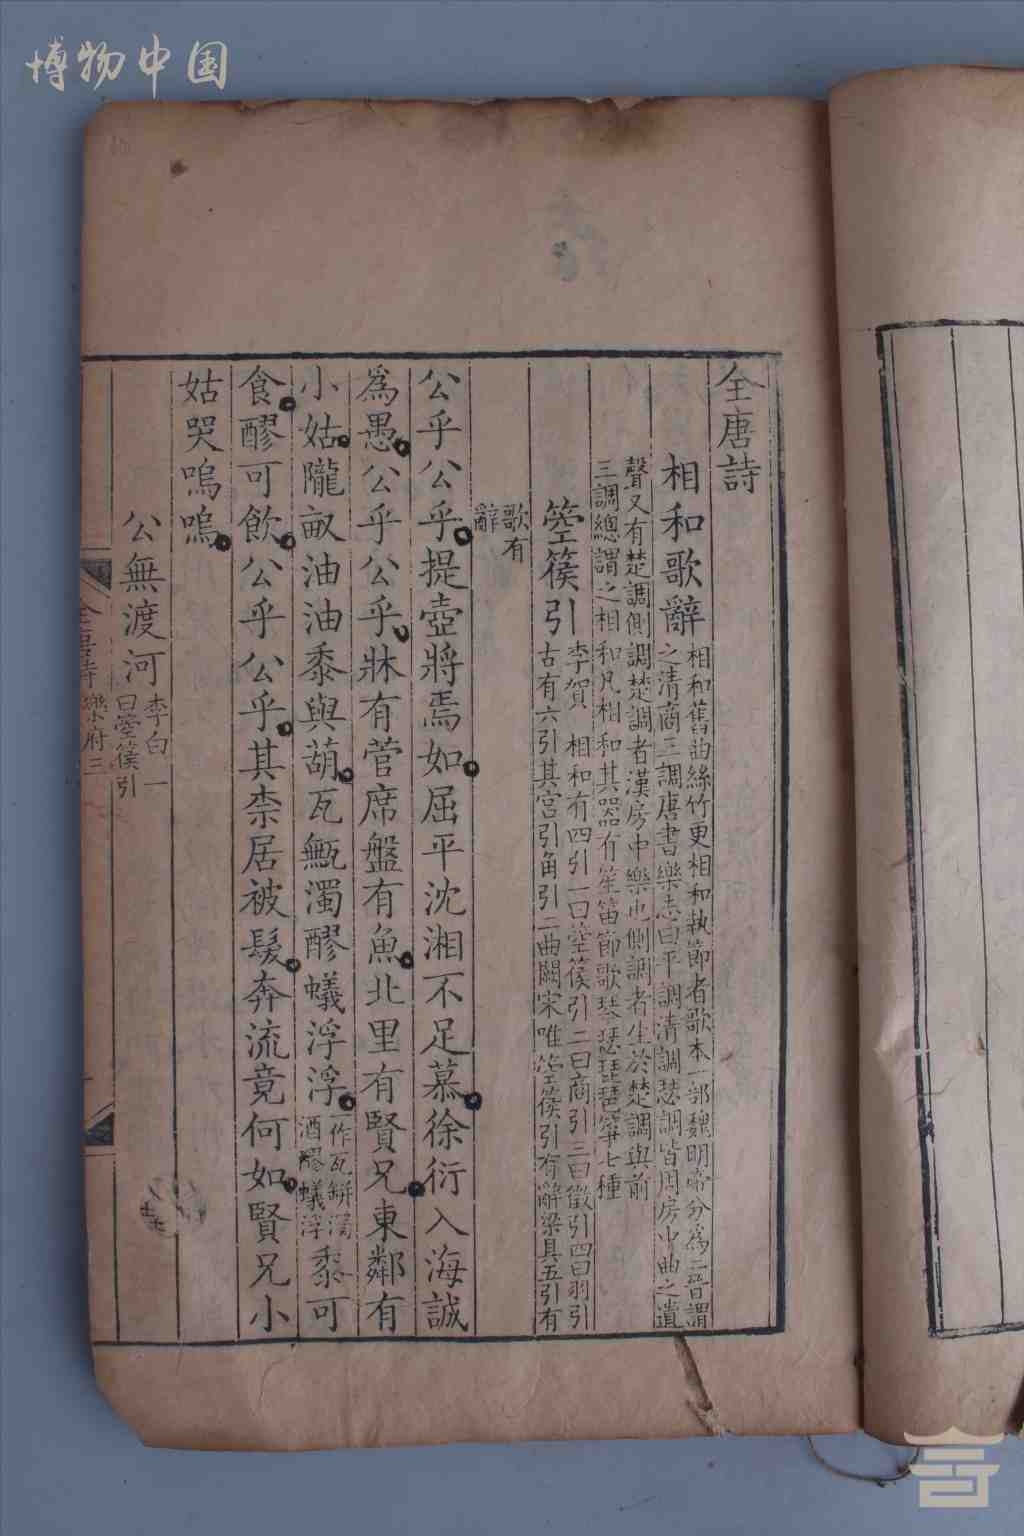 博物中国
全唐詩
相和歌辭
相和舊曲絲竹更相和執節者歌本一部魏明帝分為二晉謂
之清商三調唐書樂志曰平調清調瑟調皆周房中曲之遺
聲又有楚調側調楚調者漢房中樂也側調者生於楚調與前
三調總謂之相和凡相和其器有笙笛節歌琴瑟琵琶箏七種
箜篌引
李賀 相和有四引一曰箜篌引二曰商引三曰徵引四曰羽引
古有六引其宮引角引二曲闕宋唯箜篌引有辭梁具五引有
歌有
辭
公乎公乎提壺將焉如屈平沈湘不足慕徐衍入海誠
為愚公乎公乎牀有菅席盤有魚北里有賢兄東鄰有
小姑隴畝油油黍與葫瓦甒濁醪蟻浮浮
一作瓦缾濁
酒醪蟻浮
黍可
食醪可飲公乎公乎其柰居被髮奔流竟何如賢兄小
姑哭嗚嗚
公無渡河
李白 一
曰箜篌引
全唐詩
樂府三